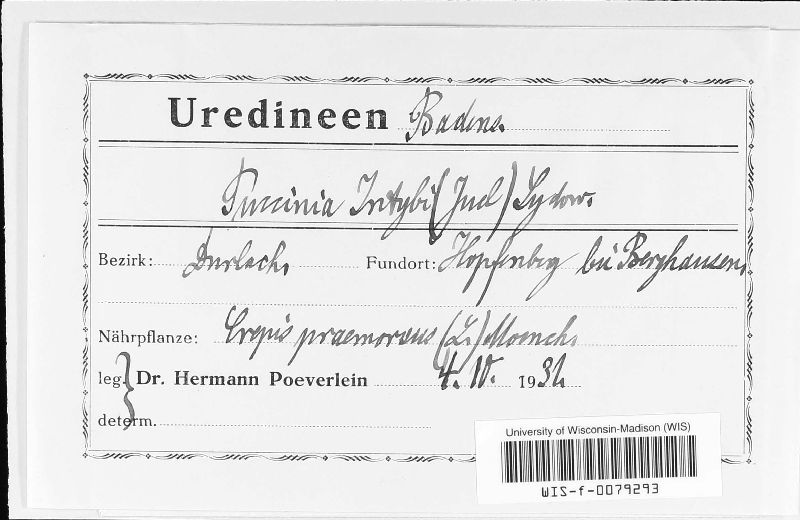 Uredineen Badens.
Puccinia Intybi (Juel) Sydow.
Bezirk: Durlach, Fundort: Hopfenberg bei Berghausen,
Nährpflanze: Crepis praemorsus (L.) Moench,
leg. } Dr. Hermann Poeverlein 4. IV. 1931.
determ.
University of Wisconsin-Madison (WIS)
WIS-f-0079293